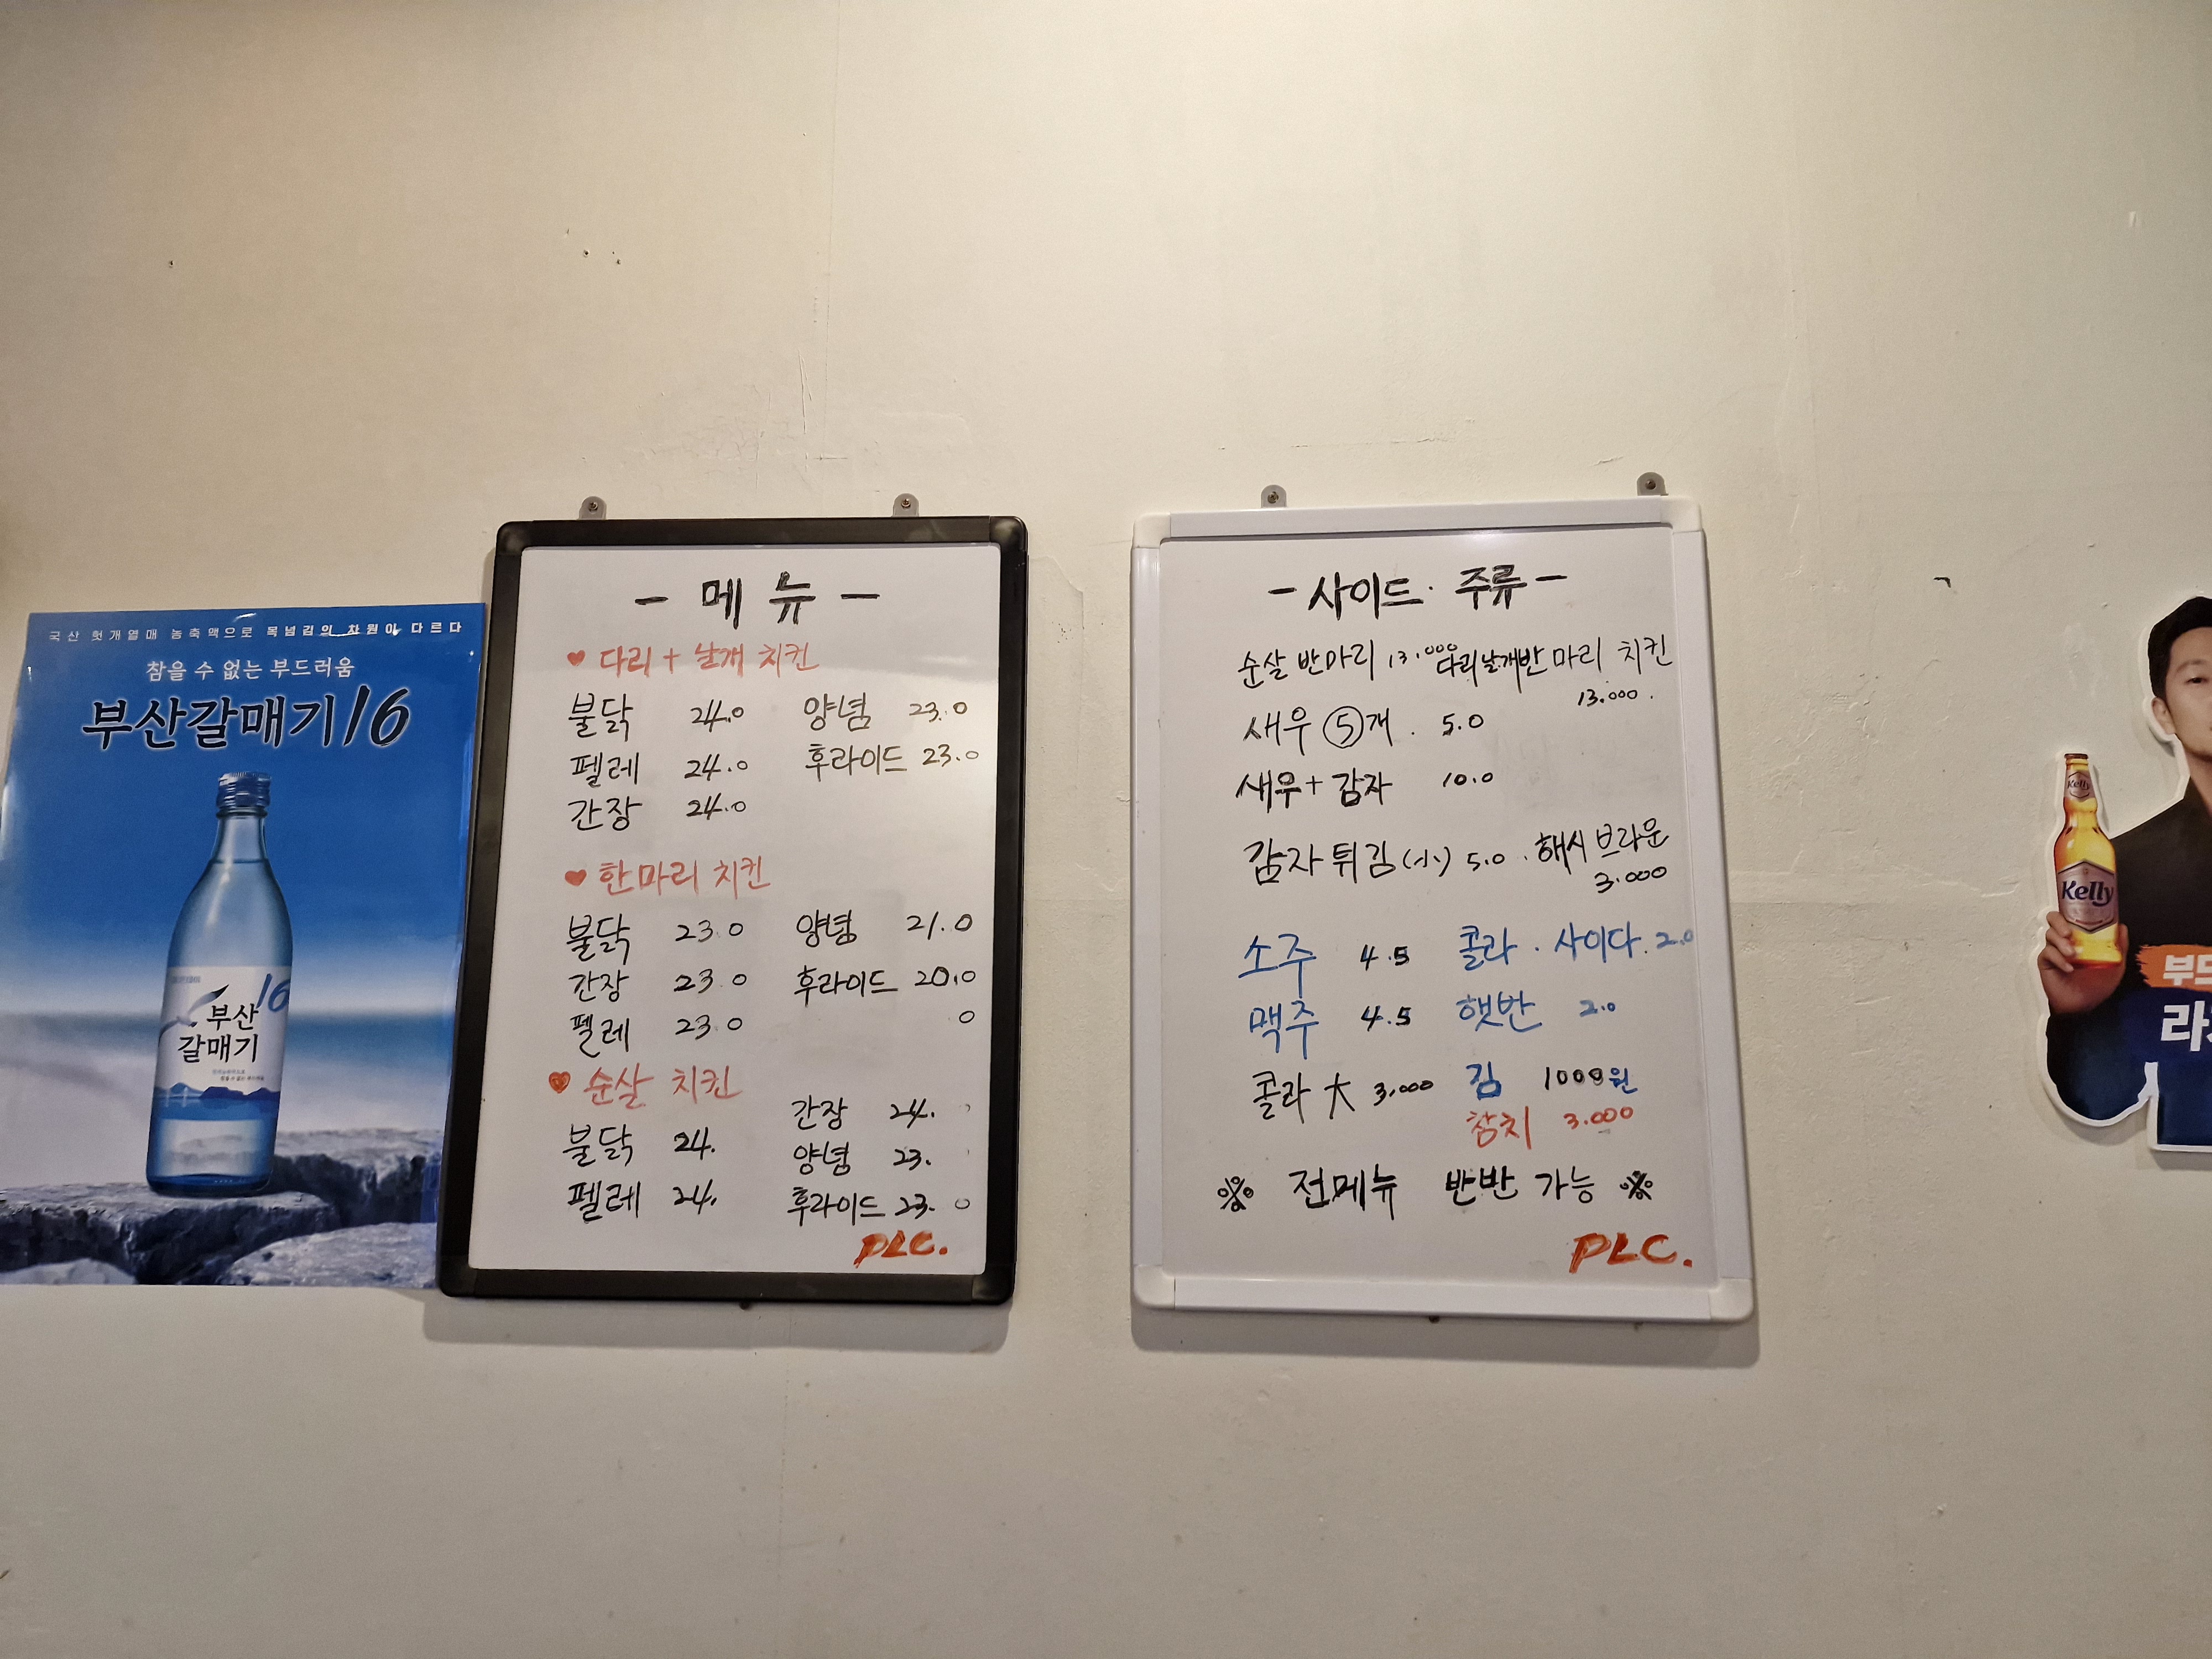 국산 헛개열매 농축액으로 목넘김의 차원이 다르다
참을 수 없는 부드러움
부산갈매기16
16
부산
갈매기
- 메뉴 -
♥ 다리 + 날개 치킨
불닭 24.0 양념 23.0
펠레 24.0 후라이드 23.0
간장 24.0
♥ 한마리 치킨
불닭 23.0 양념 21.0
간장 23.0 후라이드 20.0
펠레 23.0 0
♥ 순살 치킨
간장 24.
불닭 24. 양념 23.
펠레 24. 후라이드 23. 0
PLC.
- 사이드 · 주류 -
순살 반마리 13.000 다리날개반마리 치킨
13.000.
새우 ⑤개. 5.0
새우 + 감자 10.0
감자튀김(小) 5.0 . 해시브라운
3.000
소주 4.5 콜라 · 사이다. 2.0
맥주 4.5 햇반 2.0
콜라 大 3,000 김 1000원
참치 3.000
※ 전메뉴 반반 가능 ※
PLC.
Kelly
Kelly
부드
라